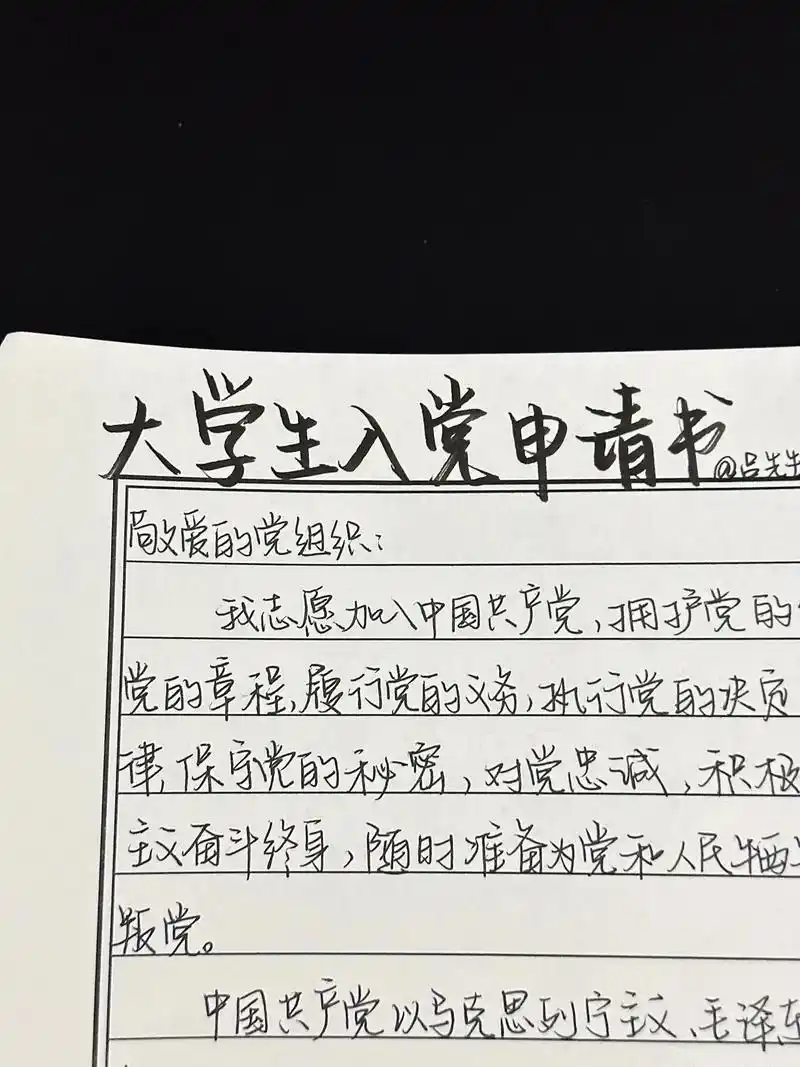 大学生入党申请书
@吕先生
敬爱的党组织：
我志愿加入中国共产党，拥护党的
党的章程，履行党的义务，执行党的决定
律，保守党的秘密，对党忠诚，积极
主义奋斗终身，随时准备为党和人民牺
叛党。
中国共产党以马克思列宁主义、毛泽东